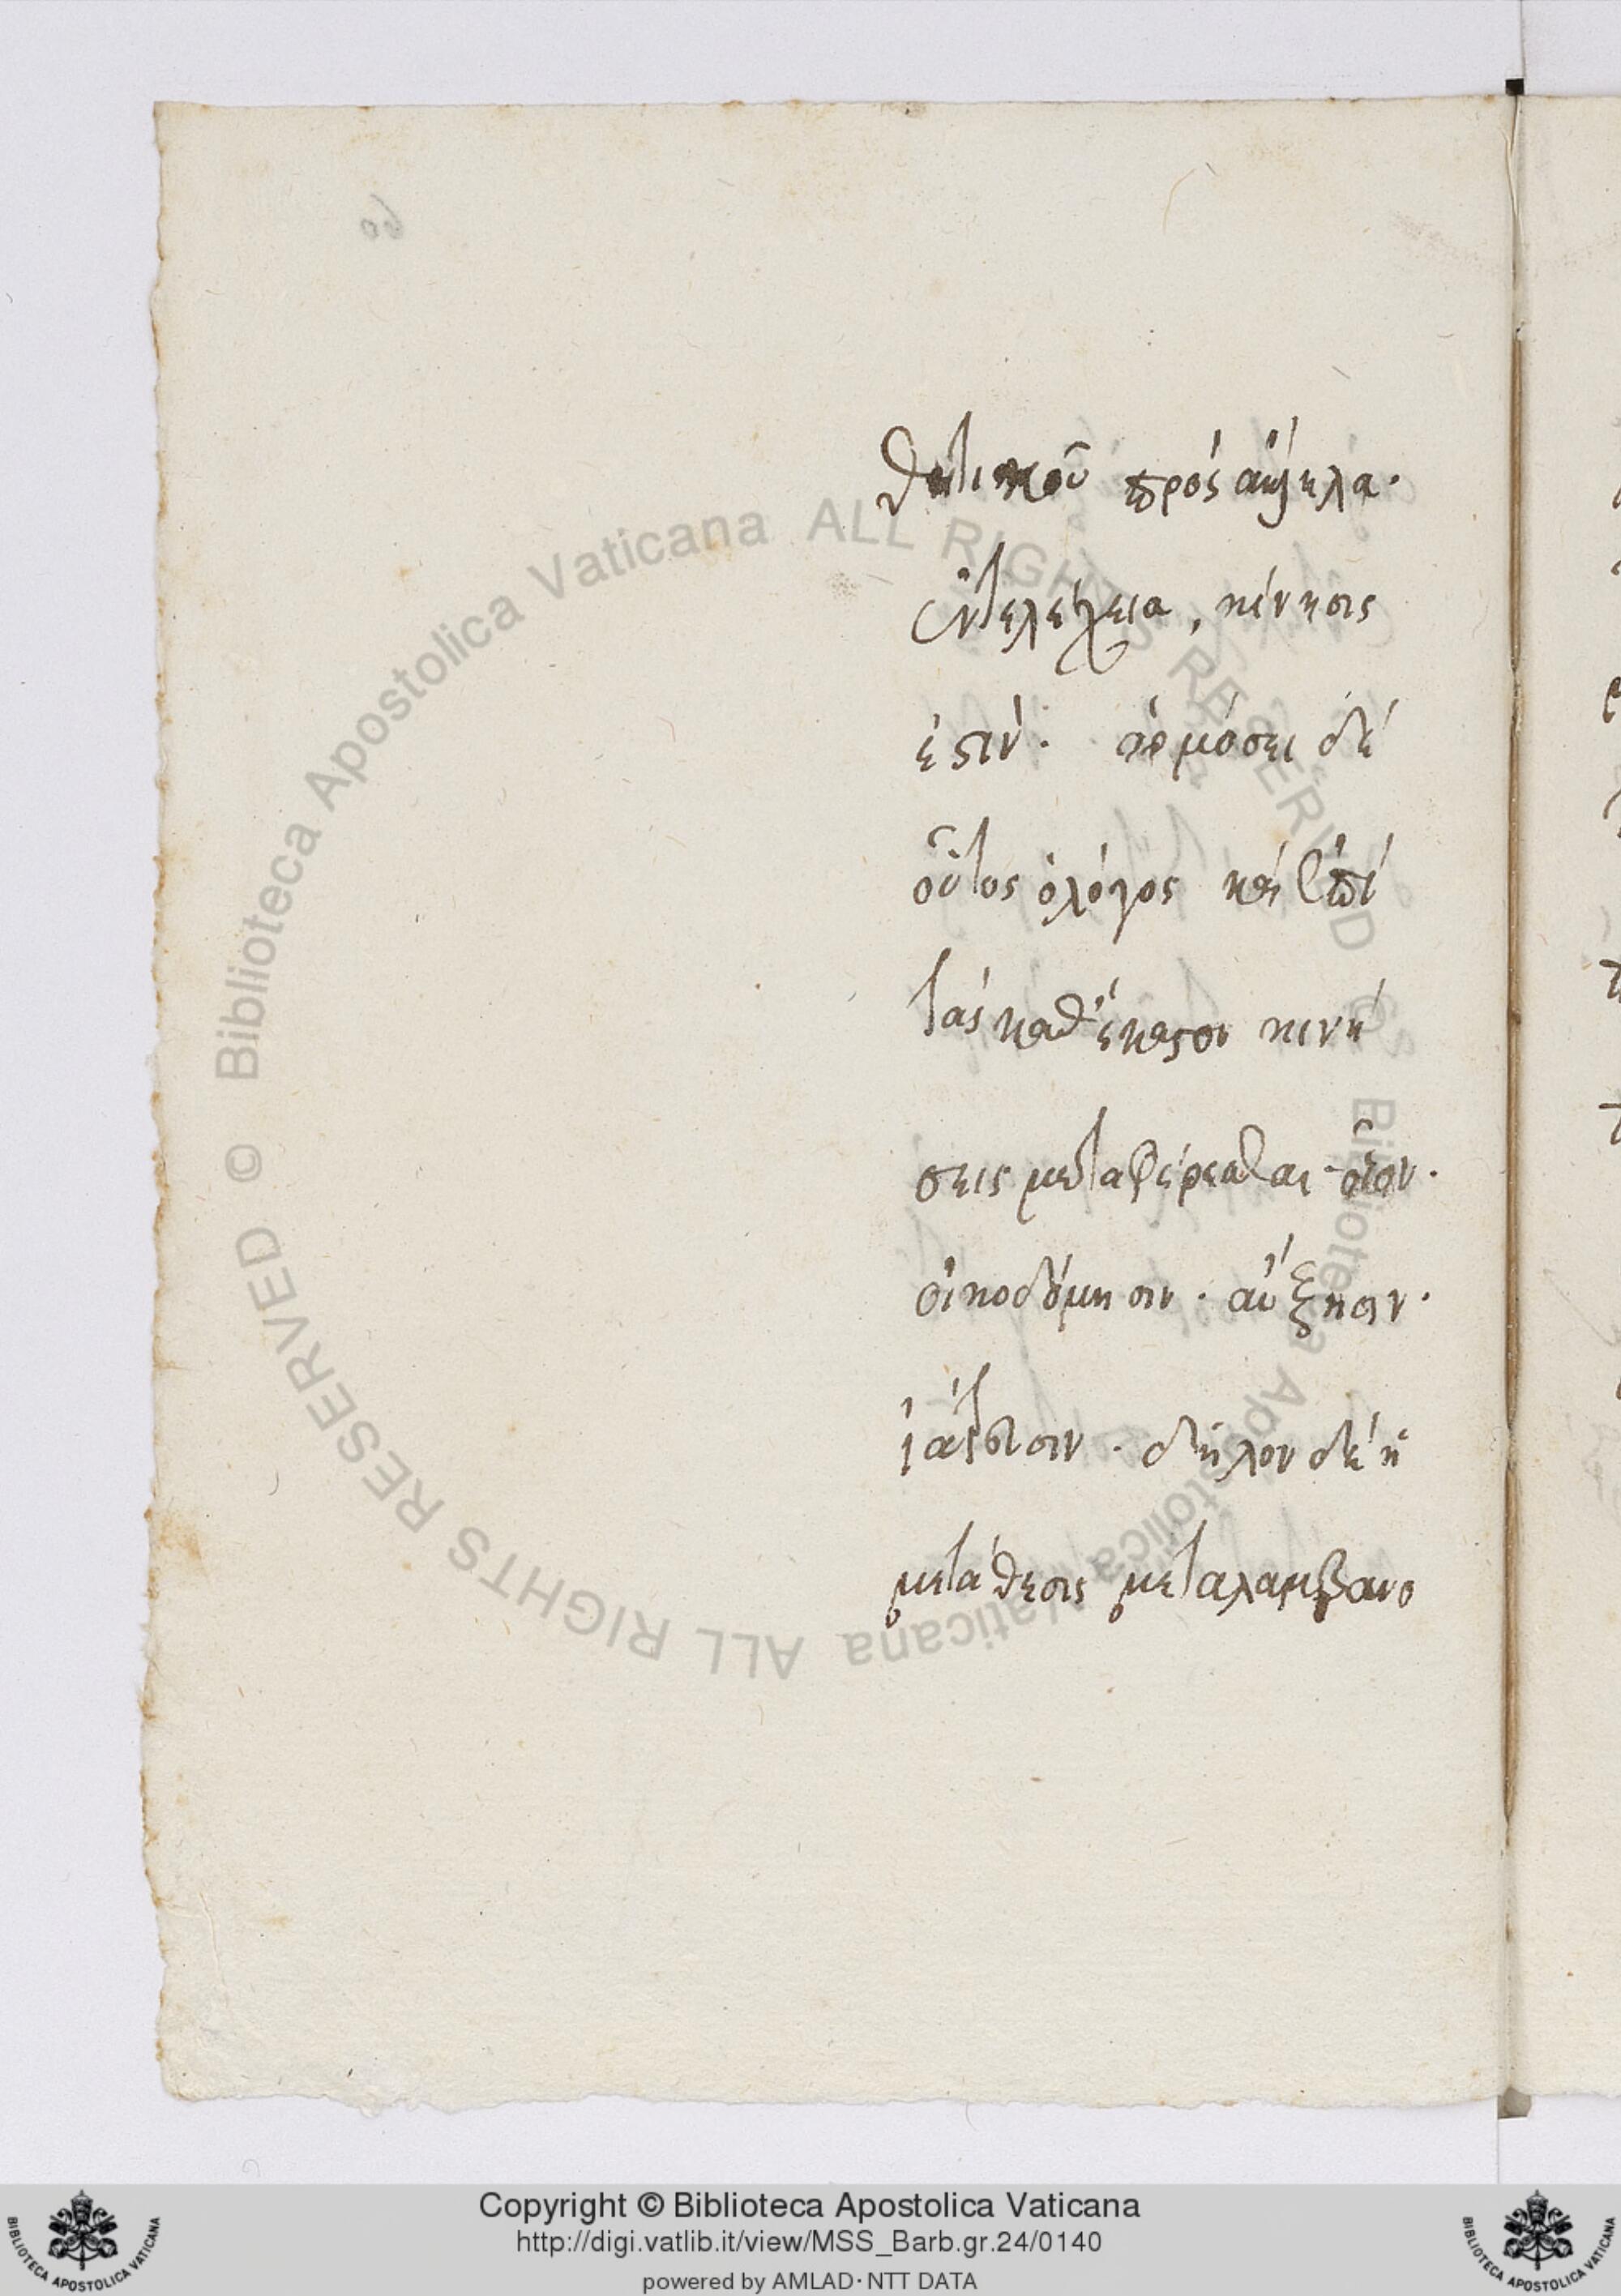 60
θητικοῦ πρὸς ἄλληλα·
ἐντελέχεια, κίνησις
ἐστὶν· ἁρμόσει δὲ
οὗτος ὁ λόγος καὶ ἐπὶ
τὰς καθ' ἕκαστον κινή
σεις μεταφέρεσθαι· οἷον·
οἰκοδόμησιν· αὔξησιν·
ἰάτρευσιν· δῆλον δὲ ἡ
μετάθεσις μεταλαμβανο
© Biblioteca Apostolica Vaticana ALL RIGHTS RESERVED © Biblioteca Apostolica Vaticana ALL RIGHTS RESERVED
Copyright © Biblioteca Apostolica Vaticana
http://digi.vatlib.it/view/MSS_Barb.gr.24/0140
powered by AMLAD·NTT DATA
BIBLIOTECA APOSTOLICA VATICANA
BIBLIOTECA APOSTOLICA VATICANA